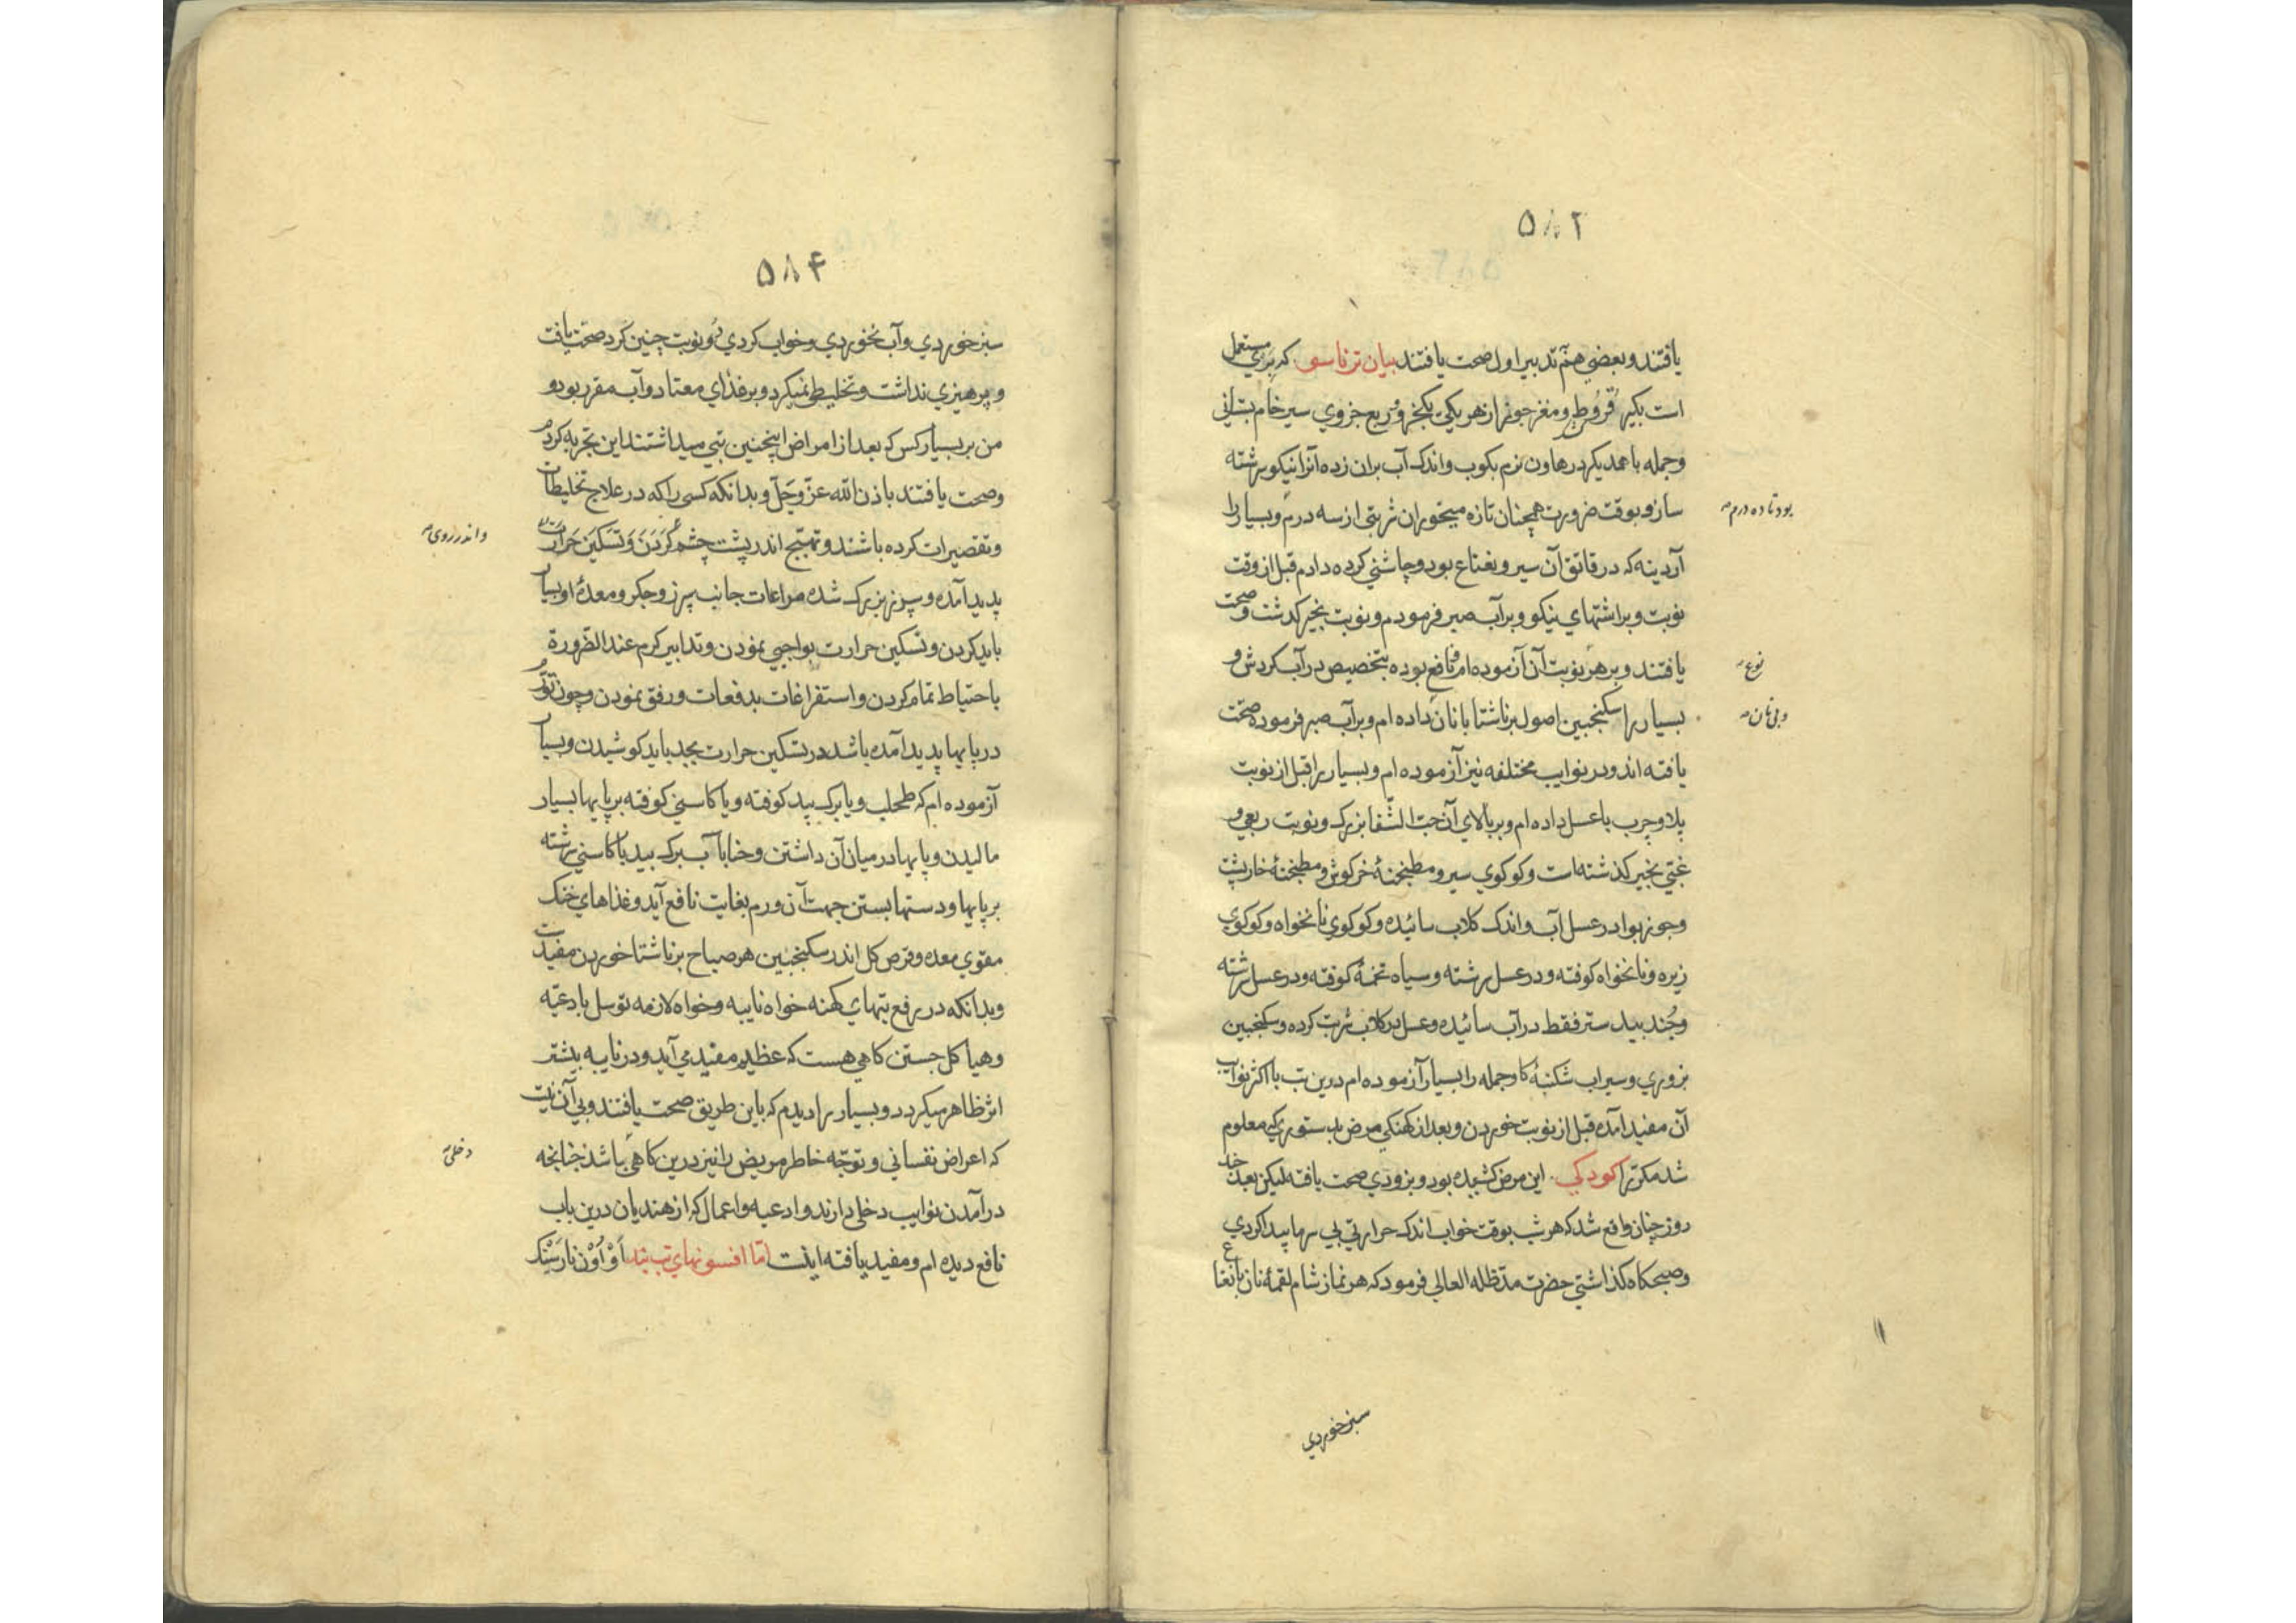 ۵۸۲
یافتند و بعضی هم تدبیر اول صحت یافتند بیان ترناسو که بری مستعمل
است بکیر قروط و مغز جوز از هر یکی یکجزو و ربع جزوی سیر خام بستانی
و جمله با همدیکر در هاون نرم بکوب و اندک آب بران زده آنرا نیکو سرشته
ساز و بوقت ضرورت همچنان تازه میخوران شربتی از سه درم و بسیار را
بود تا ده درم
آردینه که در قاتق آن سیر و نعناع بود و چاشنی کرده دادم قبل از وقت
نوبت و بر اشتهای نیکو و بر آب صبر فرمودم و نوبت بخیر کدشت و صحت
یافتند و بر هر نوبت آن آزموده ام و نافع بوده بتخصیص در آب کردش و
نوع
بسیار را سکنجبین اصول بر ناشتا با نان داده ام و بر آب صبر فرموده صحت
و بی نان
یافته اند و در نوایب مختلفه نیز آزموده ام و بسیار را قبل از نوبت
پلاو چرب با عسل داده ام و بر بالای آن حب الشفا بزرک و نوبت ربعی و
غبی بخیر کذشته است و کوکوی سیر و مطبخنهٔ خرکوش و مطبخنهٔ خارپشت
و جوز بوا در عسل آب و اندک کلاب سائیده و کوکوی نانخواه و کوکوی
زیره و نانخواه کوفته و در عسل سرشته و سیاه تخمهٔ کوفته و در عسل سرشته
و جند بیدستر فقط در آب سائیده و عسل در کلاب شربت کرده و سکنجبین
بزوری و سیراب شکنبهٔ کاو جمله را بسیار آزموده ام درین تب با اکثر نوایب
آن مفید آمده قبل از نوبت خوردن و بعد از کهنکی مرض بدستوری که معلوم
شد مکرر را کودکی این مرض کشیده بود و بزودی صحت یافته لیکن بعد چند
روز چنان واقع شد که هر شب بوقت خواب اندک حرارتی بی سرما پیدا کردی
و صبحکاه کذاشتی حضرت مد ظله العالی فرمود که هر نماز شام لقمهٔ نان با نعناع
سبز خوردی
۵۸۴
سبز خوردی و آب نخوردی و خواب کردی دو نوبت چنین کرد صحت یافت
و پرهیزی نداشت و تخلیطی نمیکرد و بر غذای معتاد و آب مقرر بود و
من بر بسیار کس که بعد از امراض اینچنین تبی میداشتند این تجربه کردم
و صحت یافتند باذن الله عز و جل و بدانکه کسی را که در علاج تخلیطات
و تقصیرات کرده باشند و تهیج اندر پشت چشم کردن و تسکین حرارت
و اندر روی
پدید آمده و سپرز بزرک شده مراعات جانب سپرز و جکر و معدهٔ او بسیار
باید کردن و تسکین حرارت بواجبی نمودن و تدابیر کرم عند الضرورة
باحتیاط تمام کردن و استفراغات بدفعات و رفق نمودن و چون تورم
در پایها پدید آمده باشد در تسکین حرارت بجد باید کوشیدن و بسیار
آزموده ام که طحلب و یا برک بید کوفته و یا کاسنی کوفته بر پایها بسیار
مالیدن و پایها در میان آن داشتن و حنا با آب برک بید یا کاسنی سرشته
بر پایها و دستها بستن جهت آن ورم بغایت نافع آید و غذاهای خنک
مقوی معده و قرص کل اندر سکنجبین هر صباح بر ناشتا خوردن مفیدست
و بدانکه در رفع تبهای کهنه خواه نایبه و خواه لازمه توسل بادعیه
و هیاکل جستن کاهی هست که عظیم مفید می آید و در نایبه بیشتر
اثر ظاهر میکردد و بسیار را دیدم که باین طریق صحت یافتند و بی آن نیست
که اعراض نفسانی و توجه خاطر مریض را نیز درین کاهی باشد چنانچه
دخلی
در آمدن نوایب دخلی دارند و ادعیه و اعمال که از هندیان درین باب
نافع دیده ام و مفید یافته اینست اما افسونهای تب بند او اون نارسنک